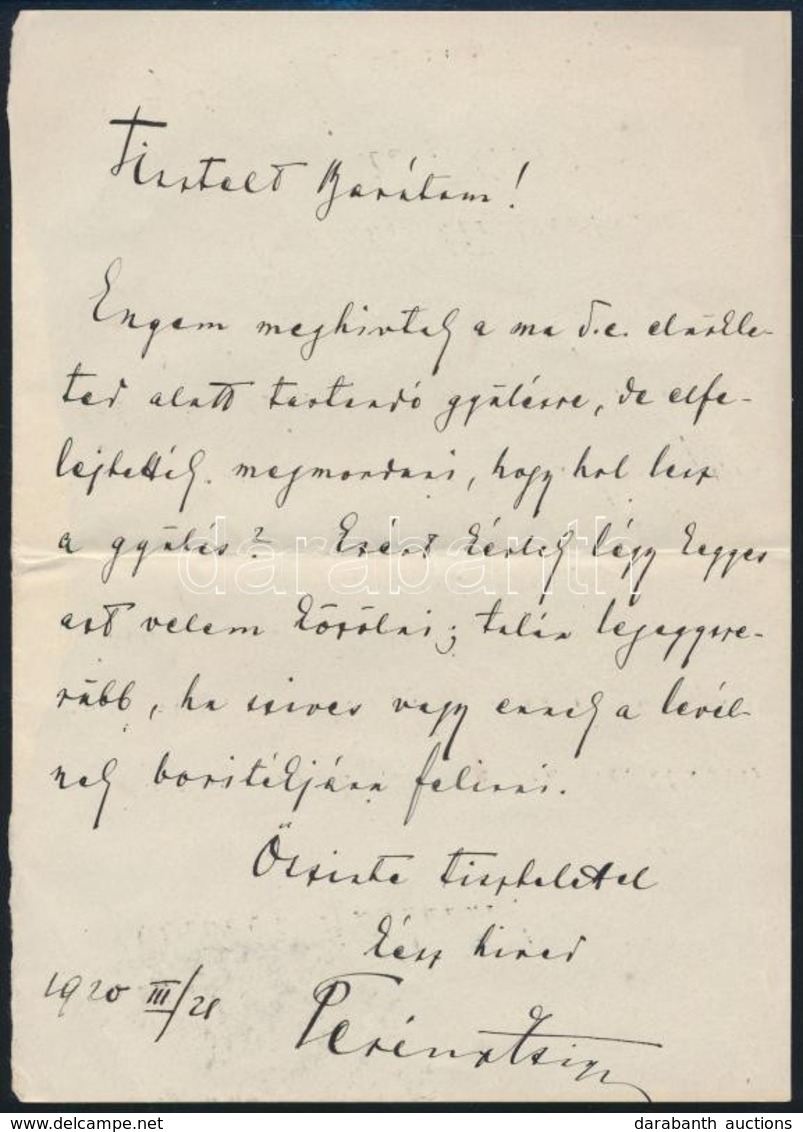 Tisztelt Barátom!
Engem meghivtak a ma d.e. elnökle-
ted alatt tartandó gyülésre, de elfe-
lejtették megmondani, hogy hol lesz
a gyülés? Ezért kérlek légy kegyes
azt velem közölni; talán legegysze-
rübb, ha szives vagy ennek a levél-
nek boritékjára felirni.
Őszinte tisztelettel
kész hived
1920 III/21
darabanth
darabanth auctions